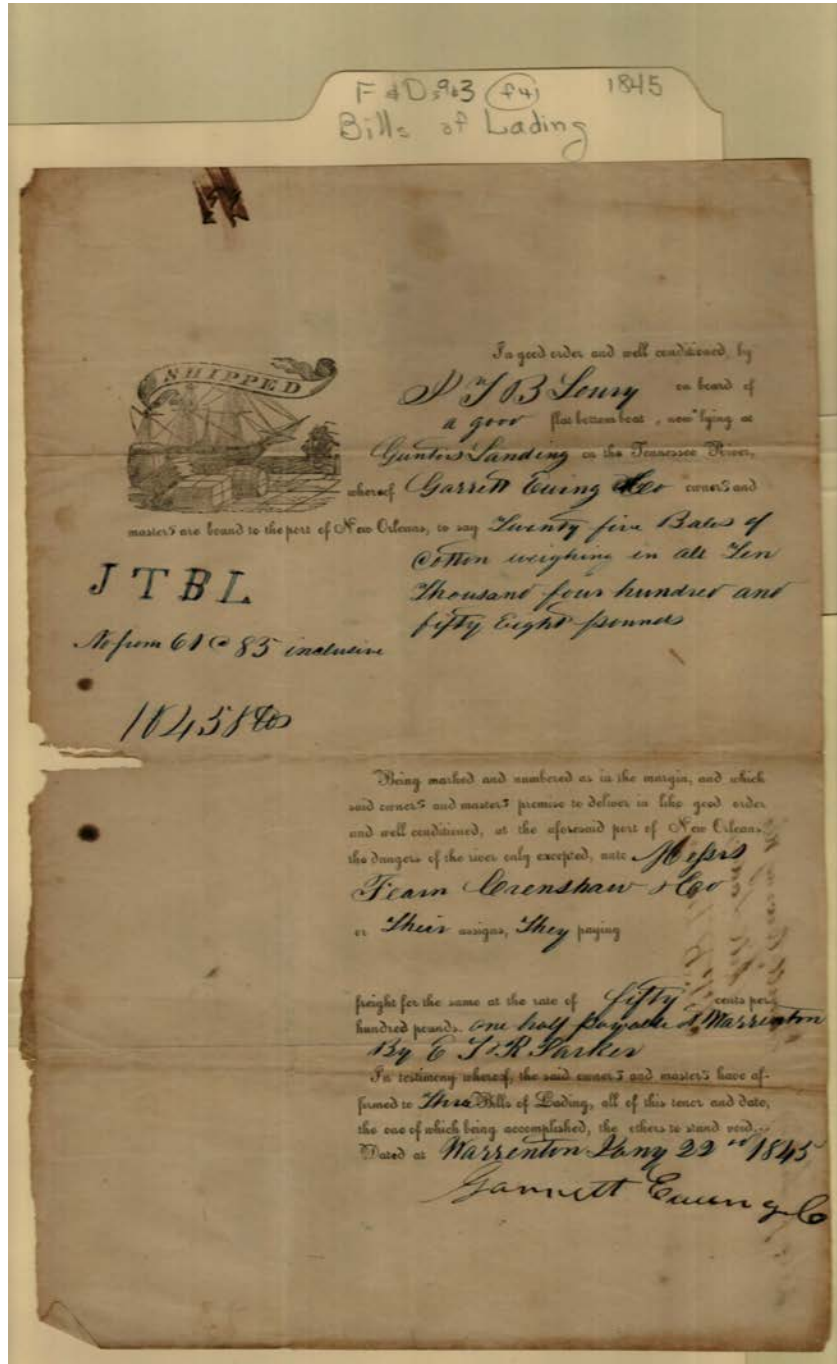 1845
Bills of Lading
SHIPPED
In good order and well conditioned, by
T B Loury on board of
a good flat bottom boat, now lying at
Gunters Landing on the Tennessee River,
whereof Garrett Ewing & Co owners and
masters are bound to the port of New Orleans, to say Twenty five Bales of
Cotton weighing in all Ten
Thousand four hundred and
fifty Eight pounds
J T B L
No from 61 @ 85 inclusive
10458 lbs
Being marked and numbered as in the margin, and which
said owners and masters promise to deliver in like good order
and well conditioned, at the aforesaid port of New Orleans
the dangers of the river only excepted, unto Messrs
Fearn Crenshaw & Co
or Their assigns, They paying
freight for the same at the rate of fifty cents per
hundred pounds. one half payable at Warrenton
By E T & R Parker
In testimony whereof, the said owners and masters have af-
firmed to Three Bills of Lading, all of this tenor and date,
the one of which being accomplished, the others to stand void.
Dated at Warrenton Jany 22nd 1845
Garrett Ewing & Co